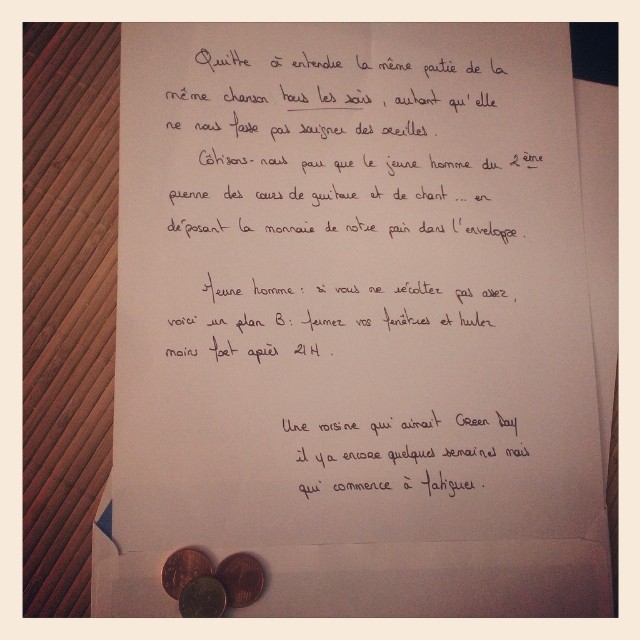 Quitte à entendre la même partie de la
même chanson tous les soirs, autant qu'elle
ne nous fasse pas saigner des oreilles.
Côtisons-nous pour que le jeune homme du 2ème
prenne des cours de guitare et de chant... en
déposant la monnaie de notre pain dans l'enveloppe.
Jeune homme : si vous ne récoltez pas assez,
voici un plan B : fermez vos fenêtres et hurlez
moins fort après 21H.
Une voisine qui aimait Green Day
il y a encore quelques semaines mais
qui commence à fatiguer.